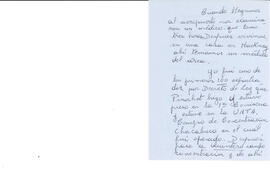 Cuando llegamos
al aeropuerto nos examina
con un médico, que
tres horas. Después vivimos
en una casa en Hackney
allí tenemos un médico
del área.
Yo fui uno de
los primeros 100 expulsa
dos por Decreto de Ley que
Pinochet hizo yo estuve
preso en la 1ª Comisaria
estuve en la
Campo de Concentración
Chacabuco en el cual
fui operado. Después
para la campo
concentración y de allí